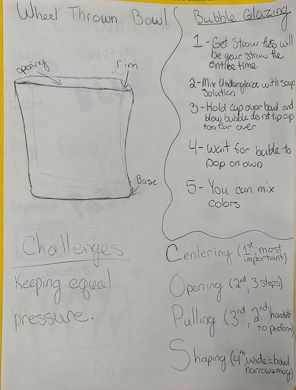 Wheel Thrown Bowl
opening
rim
Base
Bubble Glazing
1 - Get Straw this will
be your straw the
entire time
2 - Mix Underglaze with soap
solution
3 - Hold cup over bowl and
blow bubble do not tip cup
too far over
4 - Wait for buble to
pop on own
5 - You can mix
colors
Challenges
Keeping equal
pressure.
Centering (1st, most
important)
Opening (2nd, 3 steps)
Pulling (3rd, 2nd hardest
to preform)
Shaping (4th, wide=bowl
narrow=mug)